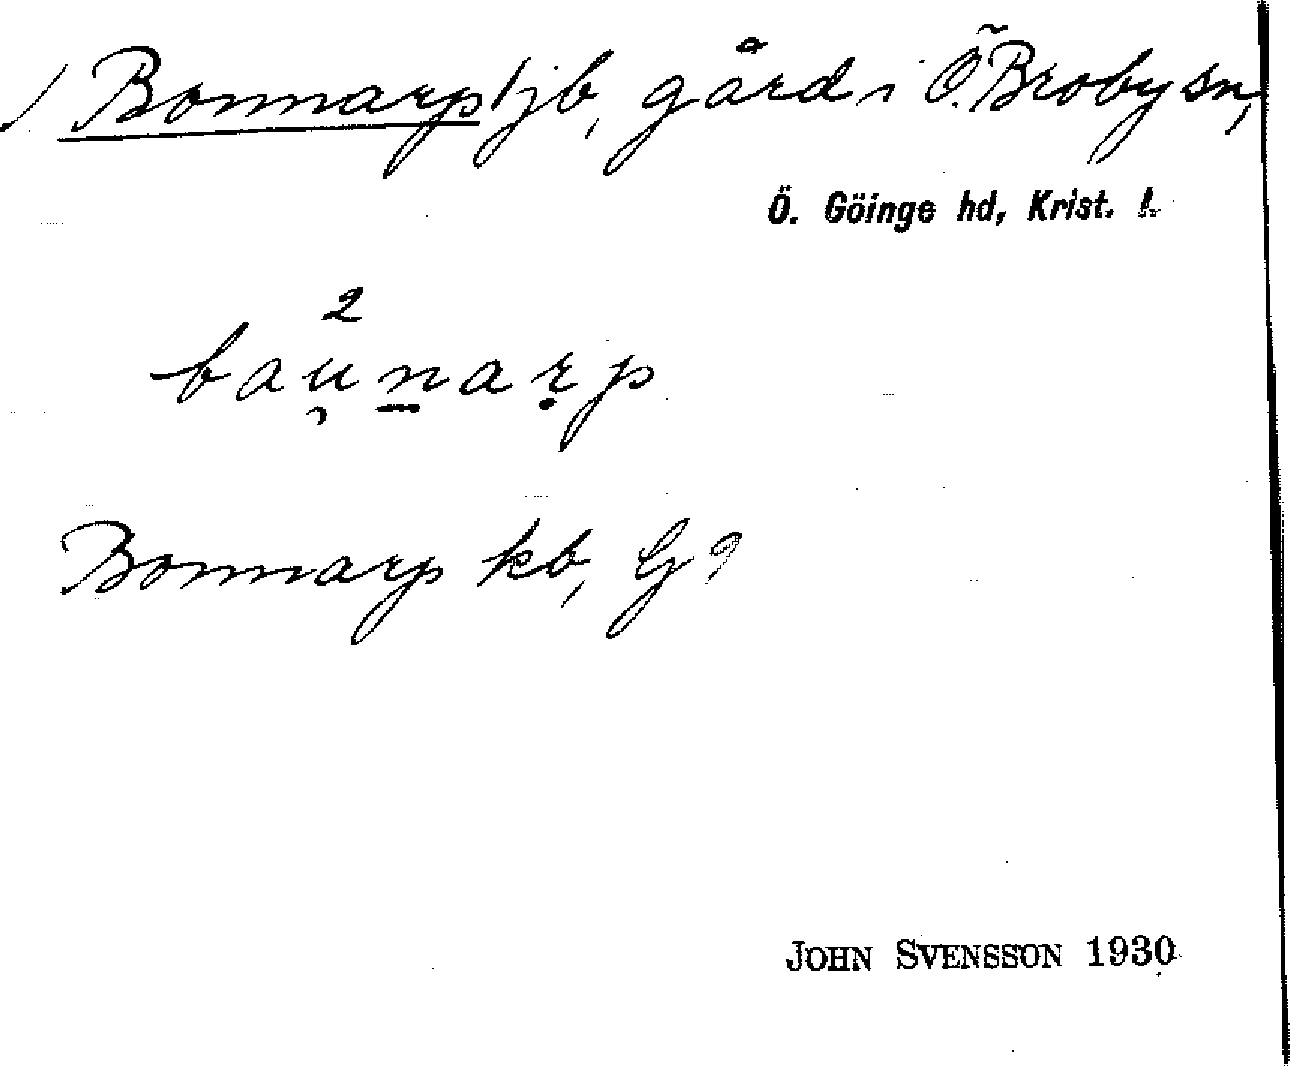 Bonnarp / jb, gård i Ö. Broby sn,
Ö. Göinge hd, Krist. l.
2
baunarp
Bonnarp kb, G 9
JOHN SVENSSON 1930